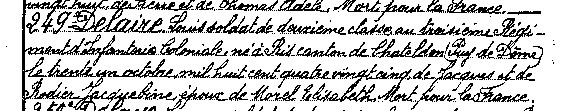 vingt huit de Acné et de Thomas Adèle. Mort pour la France.
249 Delaire, Louis soldat de deuxième classe au troisième Régi-
ment d'Infanterie Coloniale né à Ris canton de Chateldon (Puy de Dôme)
le trente un octobre mil huit cent quatre vingt cinq de Jacques et de
Rodier Jacqueline époux de Morel Elisabeth. Mort pour la France